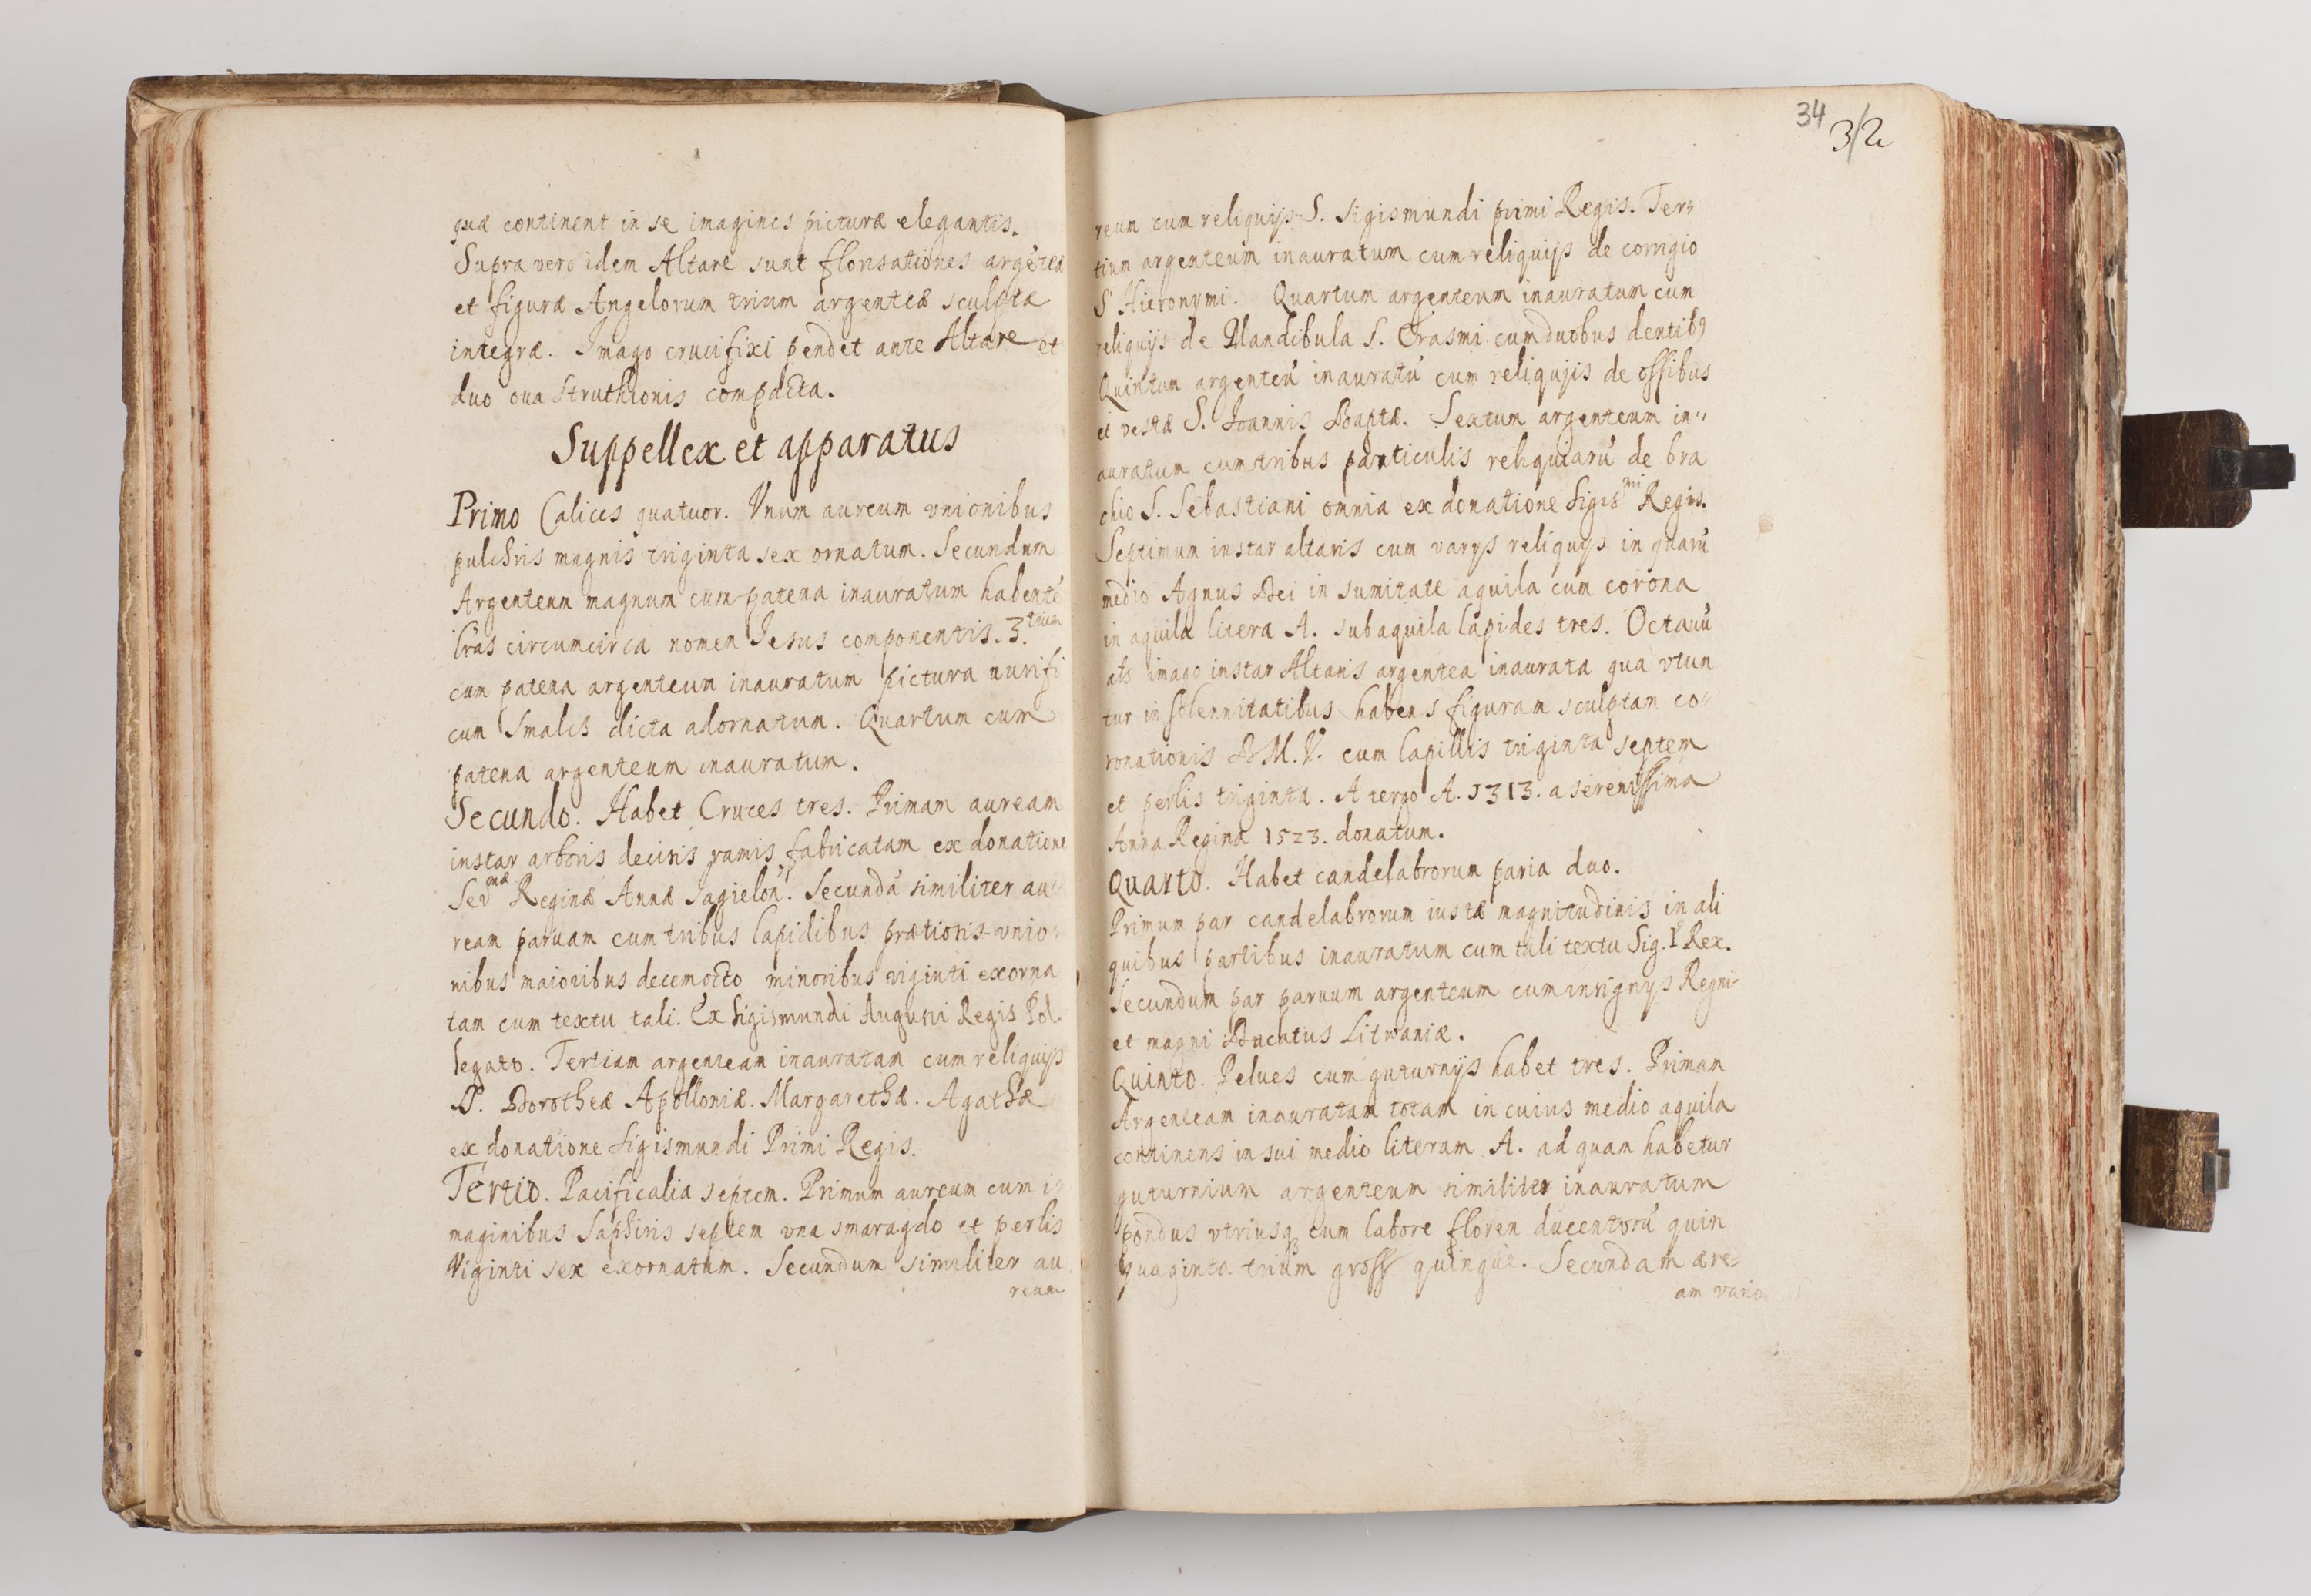 quæ continent in se imagines picturæ elegantis.
Supra vero idem Altare sunt florisationes argētea
et figuræ Angelorum trium argenteæ sculptæ
integræ. Imago crucifixi pendet ante Altare et
duo oua Struthionis compacta.
Suppellex et apparatus
Primo Calices quatuor. Vnum aureum vnionibus
pulchris magnis triginta sex ornatum. Secundum
Argenteum magnum cum patena inauratum habentē
lr̄as circumcirca nomen Iesus componentis. 3.trium
cum patena argenteum inauratum pictura aurifi
cum Smalcs dicta adornatum. Quartum cum
patena argenteum inauratum.
Secundo. Habet Cruces tres. Primam auream
instar arboris decisis ramis fabricatam ex donatione
Ser næ Reginæ Annæ Jagielon. Secundā similiter au
ream paruam cum tribus lapidibus prætiosis vnio
nibus maioribus decemocto minoribus viginti exorna
tam cum textu tali. Ex Sigismundi Augusti Regis Pol.
legato. Tertiam argenteam inauratam cum reliquijs
S. Dorotheæ Apolloniæ. Margarethæ. Agathæ
ex donatione Sigismundi Primi Regis.
Tertio. Pacificalia septem. Primum aureum cum i
maginibus Saphiris septem vna smaragdo et perlis
Viginti sex exornatum. Secundum similiter au
reum
34 32
reum cum reliquijs S. Sigismundi primi Regis. Ter
tium argenteum inauratum cum reliquijs de corrigio
S Hieronymi. Quartum argenteum inauratum cum
reliquijs de Mandibula S. Erasmi cum duobus dentibꝰ
Quintum argenteū inauratū cum reliquijis de ossibus
et vestæ S. Ioannis Baptæ. Sextum argenteum in"
auratum cum tribus particulis reliquiarū de bra
chio S. Sebastiani omnia ex donatione Sigis mi Regis.
Septimum instar altaris cum varijs reliquijs in quarū
medio Agnus Dei in sumitate aquila cum corona
in aquila litera A. sub aquila lapides tres. Octauū
als imago instar Altaris argentea inaurata qua vtun
tur in solennitatibus habens figuram sculptam co
ronationis B M. V. cum lapillis triginta septem
et perlis triginta. A tergo A. 1313. a serenissima
Anna Regina 1523. donatum.
Quarto. Habet candelabrorum paria duo.
Primum par candelabrorum iustæ magnitudinis in ali
quibus partibus inauratum cum tali textu Sig. I Rex.
Secundum par paruum argenteum cum insignijs Regni
et magni Ducatus Litvaniæ.
Quinto. Pelues cum guturnijs habet tres. Primam
Argenteam inauratam totam in cuius medio aquila
continens in sui medio literam A. ad quam habetur
guturnium argenteum similiter inauratum
pondus vtriusqꝫ cum labore floren ducentorū quin
quaginta trium gross quinque. Secundam ære
am vario